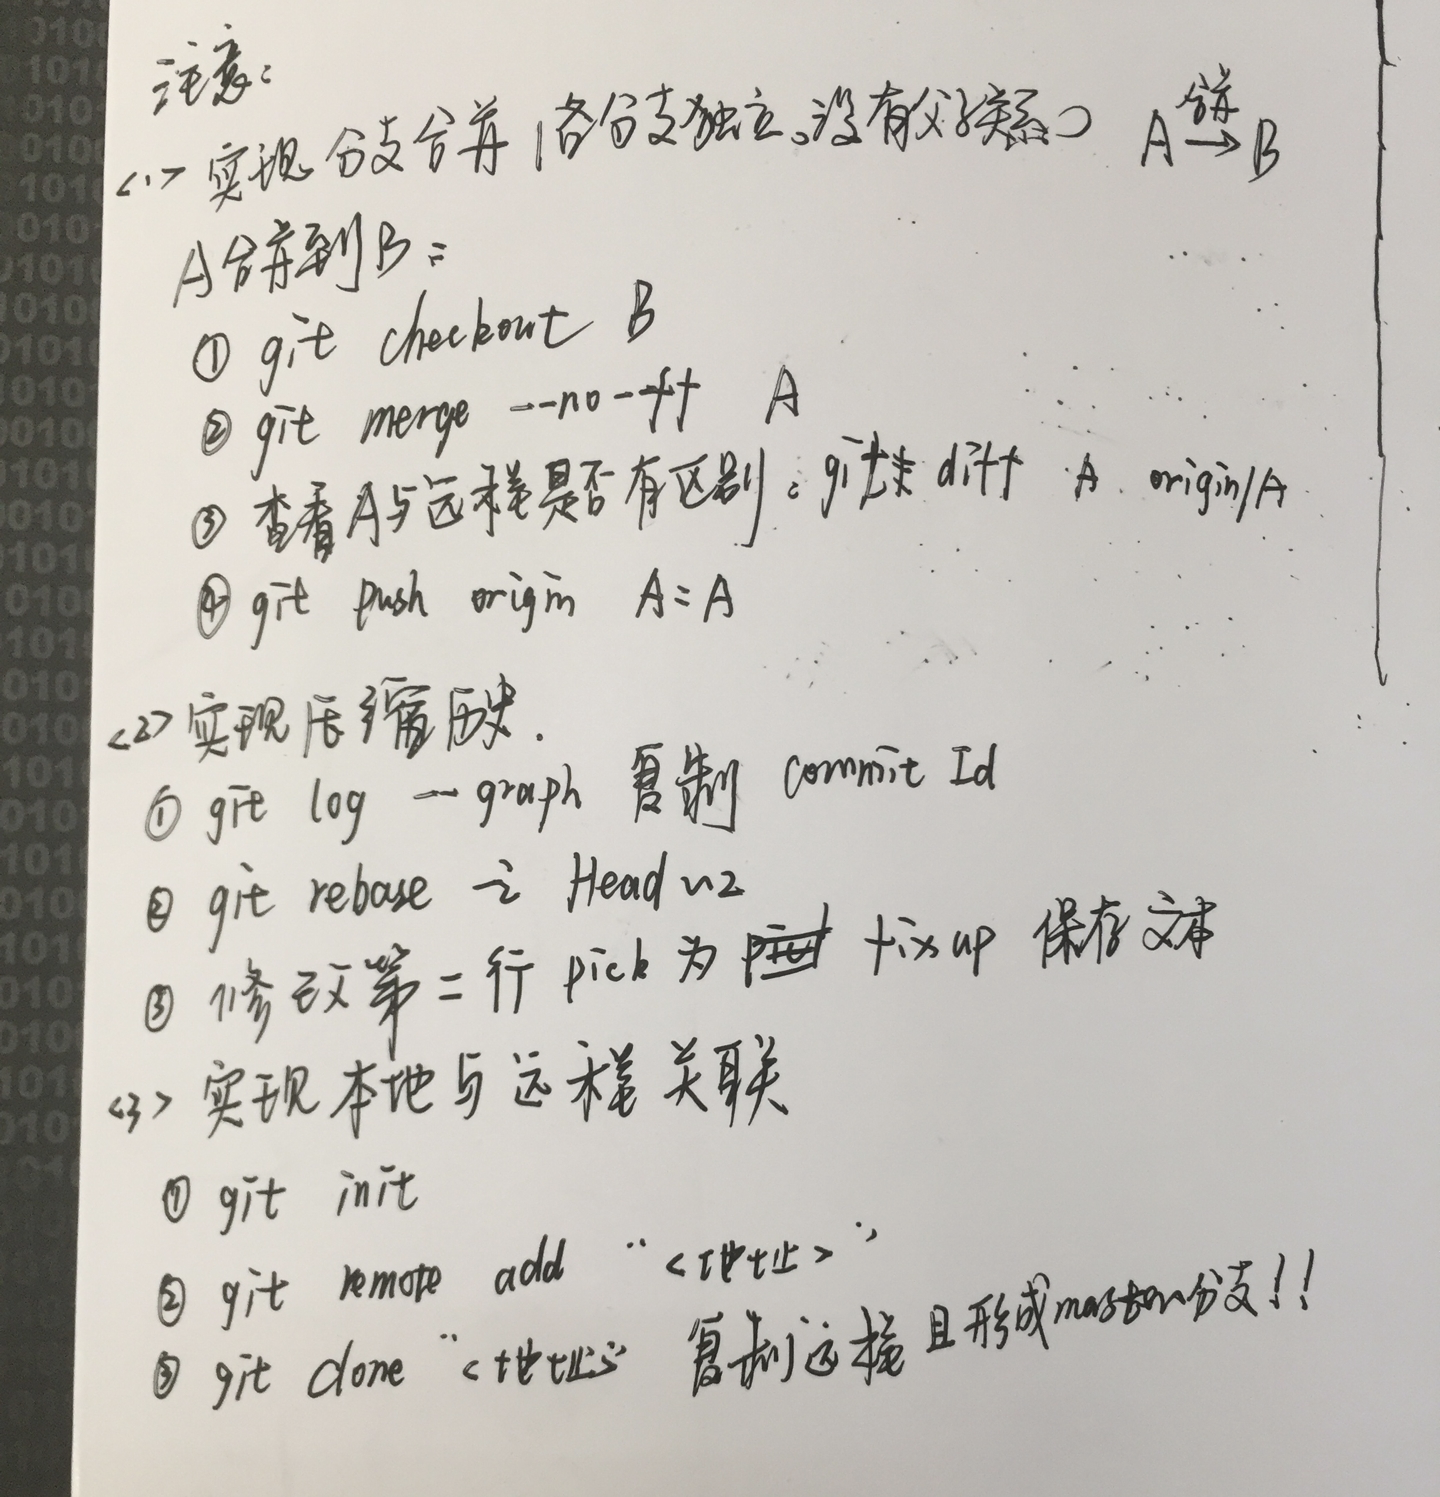 注意:
<1> 实现分支合并(各分支独立。没有父子关系) A 合并→ B
A合并到B:
① git checkout B
② git merge --no-ff A
③ 查看A与远程是否有区别: git diff A origin/A
④ git push origin A:A
<2> 实现压缩历史.
① git log --graph 复制 commit Id
② git rebase -i Head~2
③ 修改第二行 pick 为 fixup 保存文本
<3> 实现本地与远程关联
① git init
② git remote add "<地址>"
③ git clone "<地址>" 复制远程且形成master分支!!